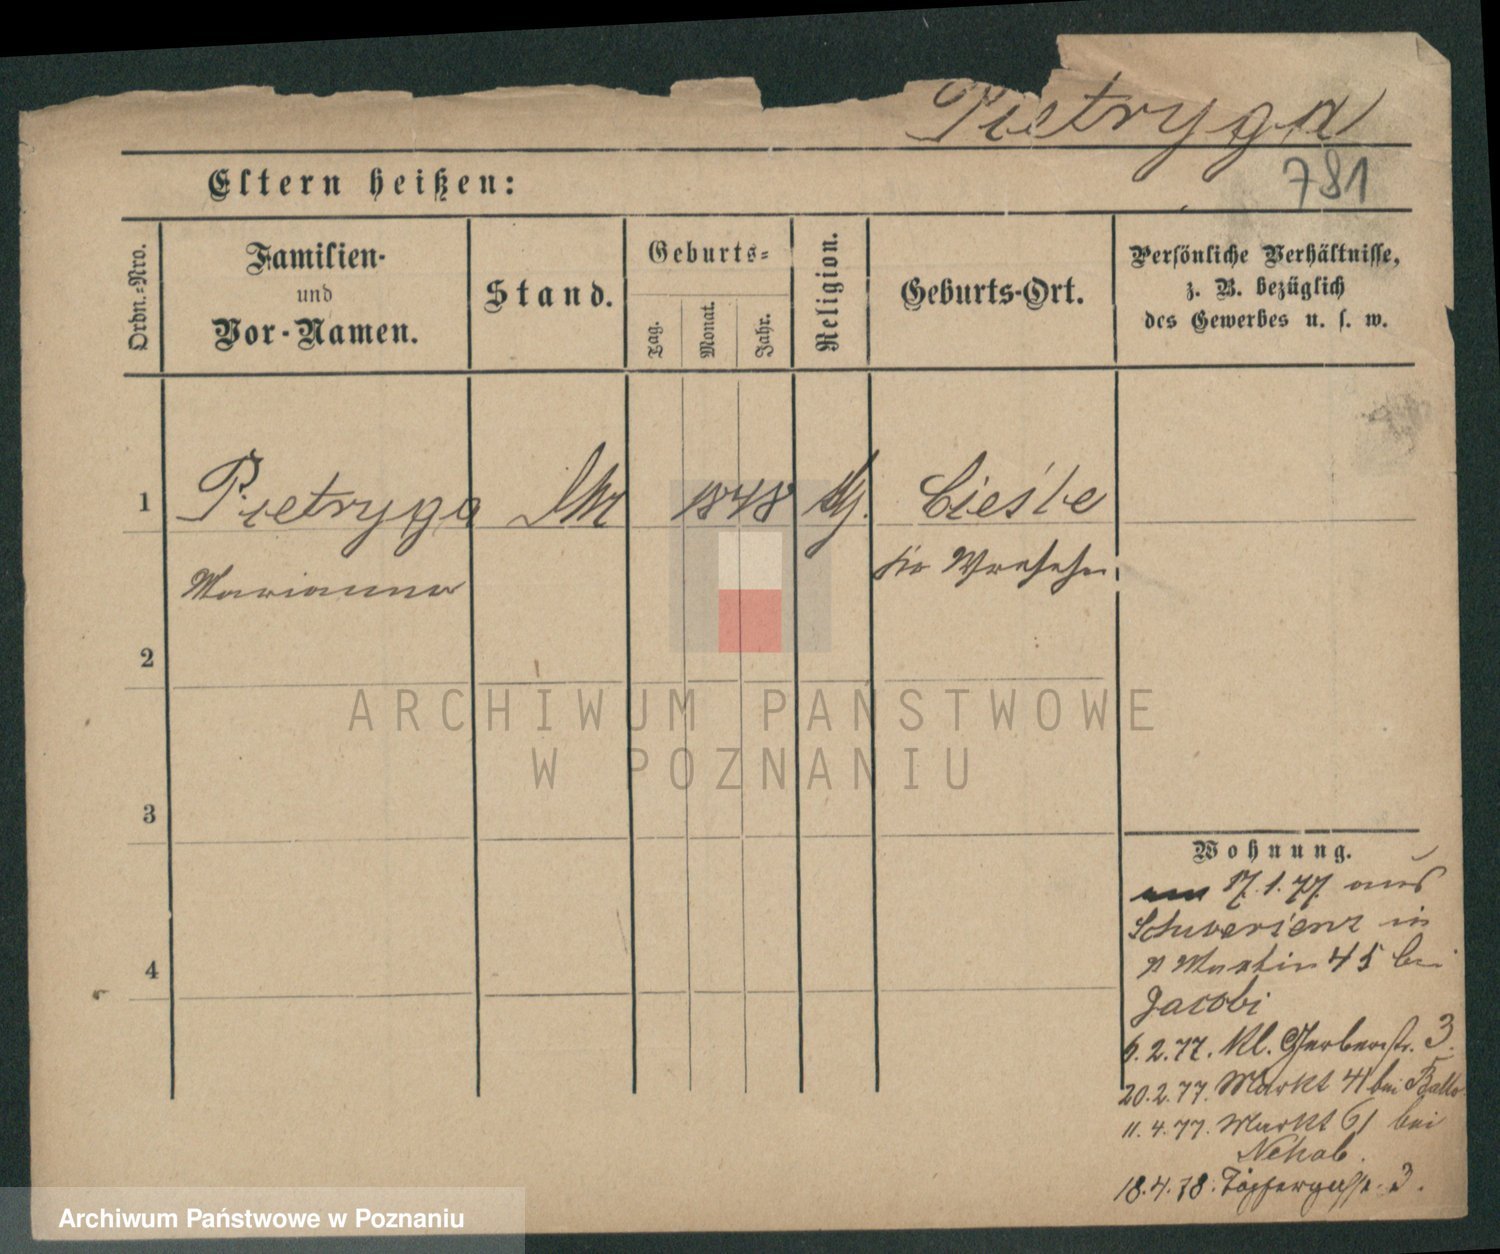 Pietryga
781
Eltern heißen:
Ordn.-Nro.
Familien-
und
Vor-Namen.
Stand.
Geburts-
Tag.
Monat.
Jahr.
Religion.
Geburts-Ort.
Persönliche Verhältnisse,
z. B. bezüglich
des Gewerbes u. s. w.
1 Pietryga 1848 Cieśle
Marianna Kr Wreschen
2
3
4
ARCHIWUM PAŃSTWOWE
W POZNANIU
Wohnung.
17.1.77. aus
Schwersenz in
St Martin 45 bei
Jacobi
6.2.77. Kl. Gerberstr. 3.
20.2.77. Markt 41 bei
11.4.77. Markt 61 bei
Nehab.
18.4.78. Töpfergasse 3.
Archiwum Państwowe w Poznaniu